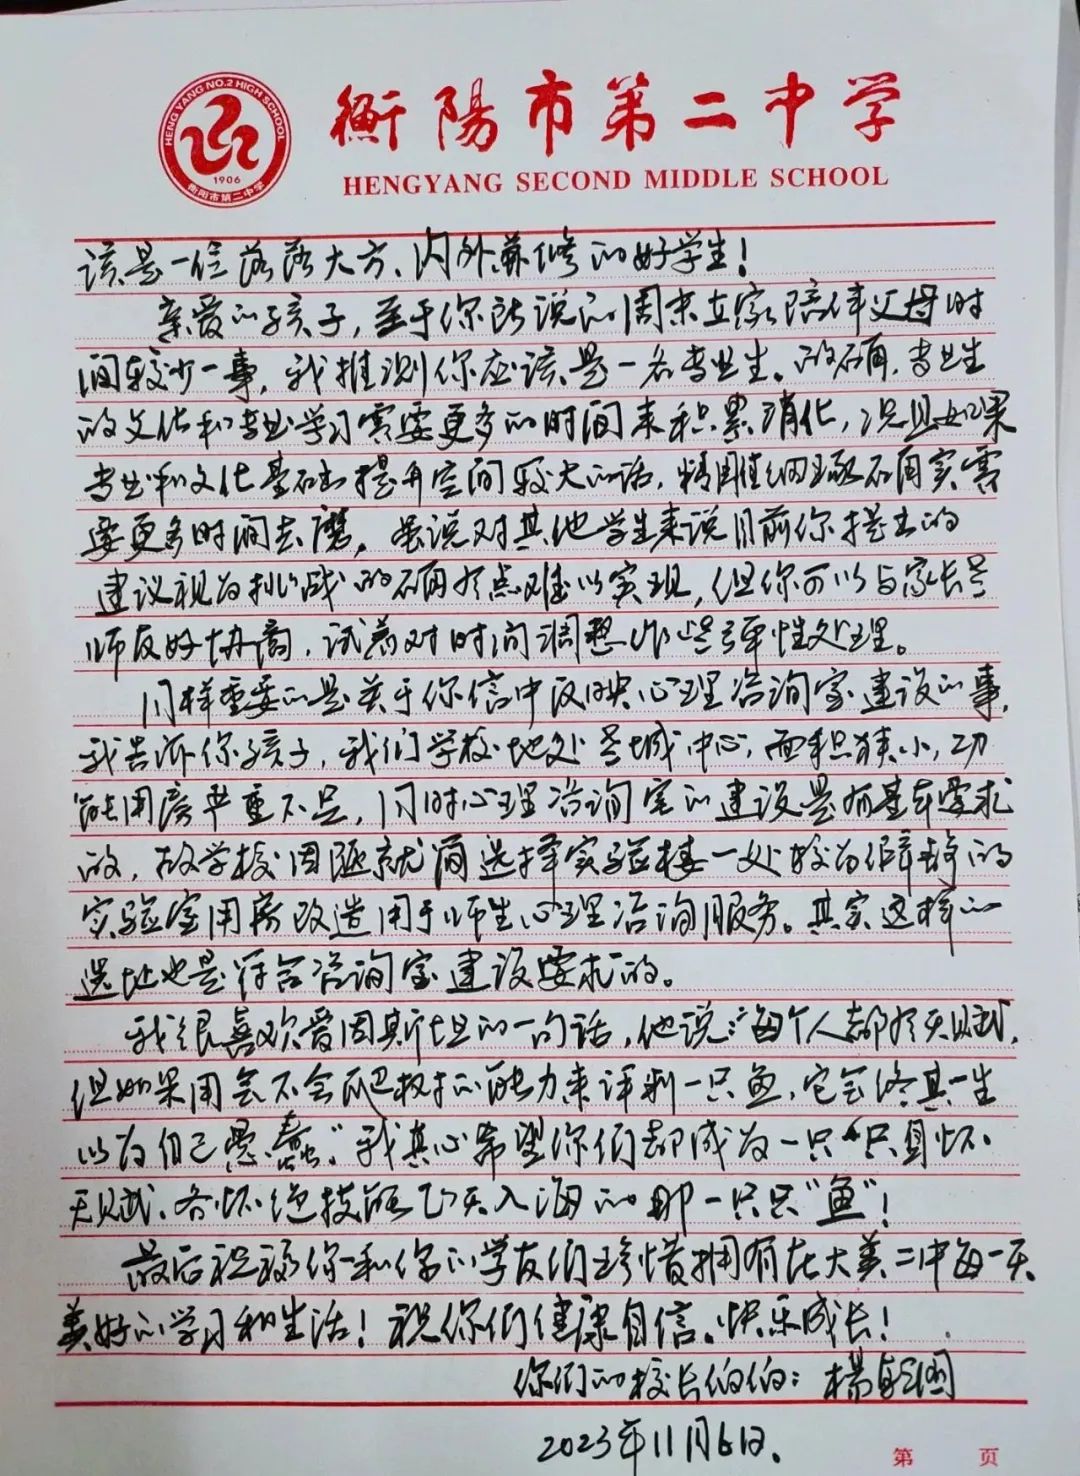 HENG YANG NO.2 HIGH SCHOOL
1906
衡阳市第二中学
衡陽市第二中学
HENGYANG SECOND MIDDLE SCHOOL
该是一位落落大方、内外兼修的好学生！
亲爱的孩子，至于你所说的周末在家陪伴父母时
间较少一事，我推测你应该是一名专业生。的确，专业生
的文化和专业学习需要更多的时间来积累消化，况且如果
专业和文化基础提升空间较大的话，精雕细琢确实需
要更多时间去磨，虽说对其他学生来说目前你提出的
建议视为挑战的确有点难以实现，但你可以与家长老
师友好协商，试着对时间调整作些弹性处理。
同样重要的是关于你信中反映心理咨询室建设的事，
我告诉你孩子，我们学校地处老城中心，面积狭小，功
能用房严重不足，同时心理咨询室的建设是有基本要求
的，故学校因陋就简选择实验楼一处较为僻静的
实验室用房改造用于师生心理咨询服务。其实这样的
选址也是符合咨询室建设要求的。
我很喜欢爱因斯坦的一句话，他说：“每个人都有天赋，
但如果用会不会爬树的能力来评判一只鱼，它会终其一生
以为自己愚蠢。”我真心希望你们都成为一只只身怀
天赋、各怀绝技能飞天入海的那一只只“鱼”！
最后祝福你和你的学友们珍惜拥有在大美二中每一天
美好的学习和生活！祝你们健康自信、快乐成长！
你们的校长伯伯：
2023年11月6日。
第 页